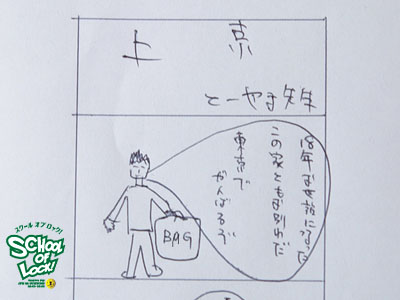 上京
とーやま先生
18年お世話になった
この家ともお別れだ
東京で
がんばるぞ
BAG
スクール オブ ロック!
SCHOOL
OF
LOCK!